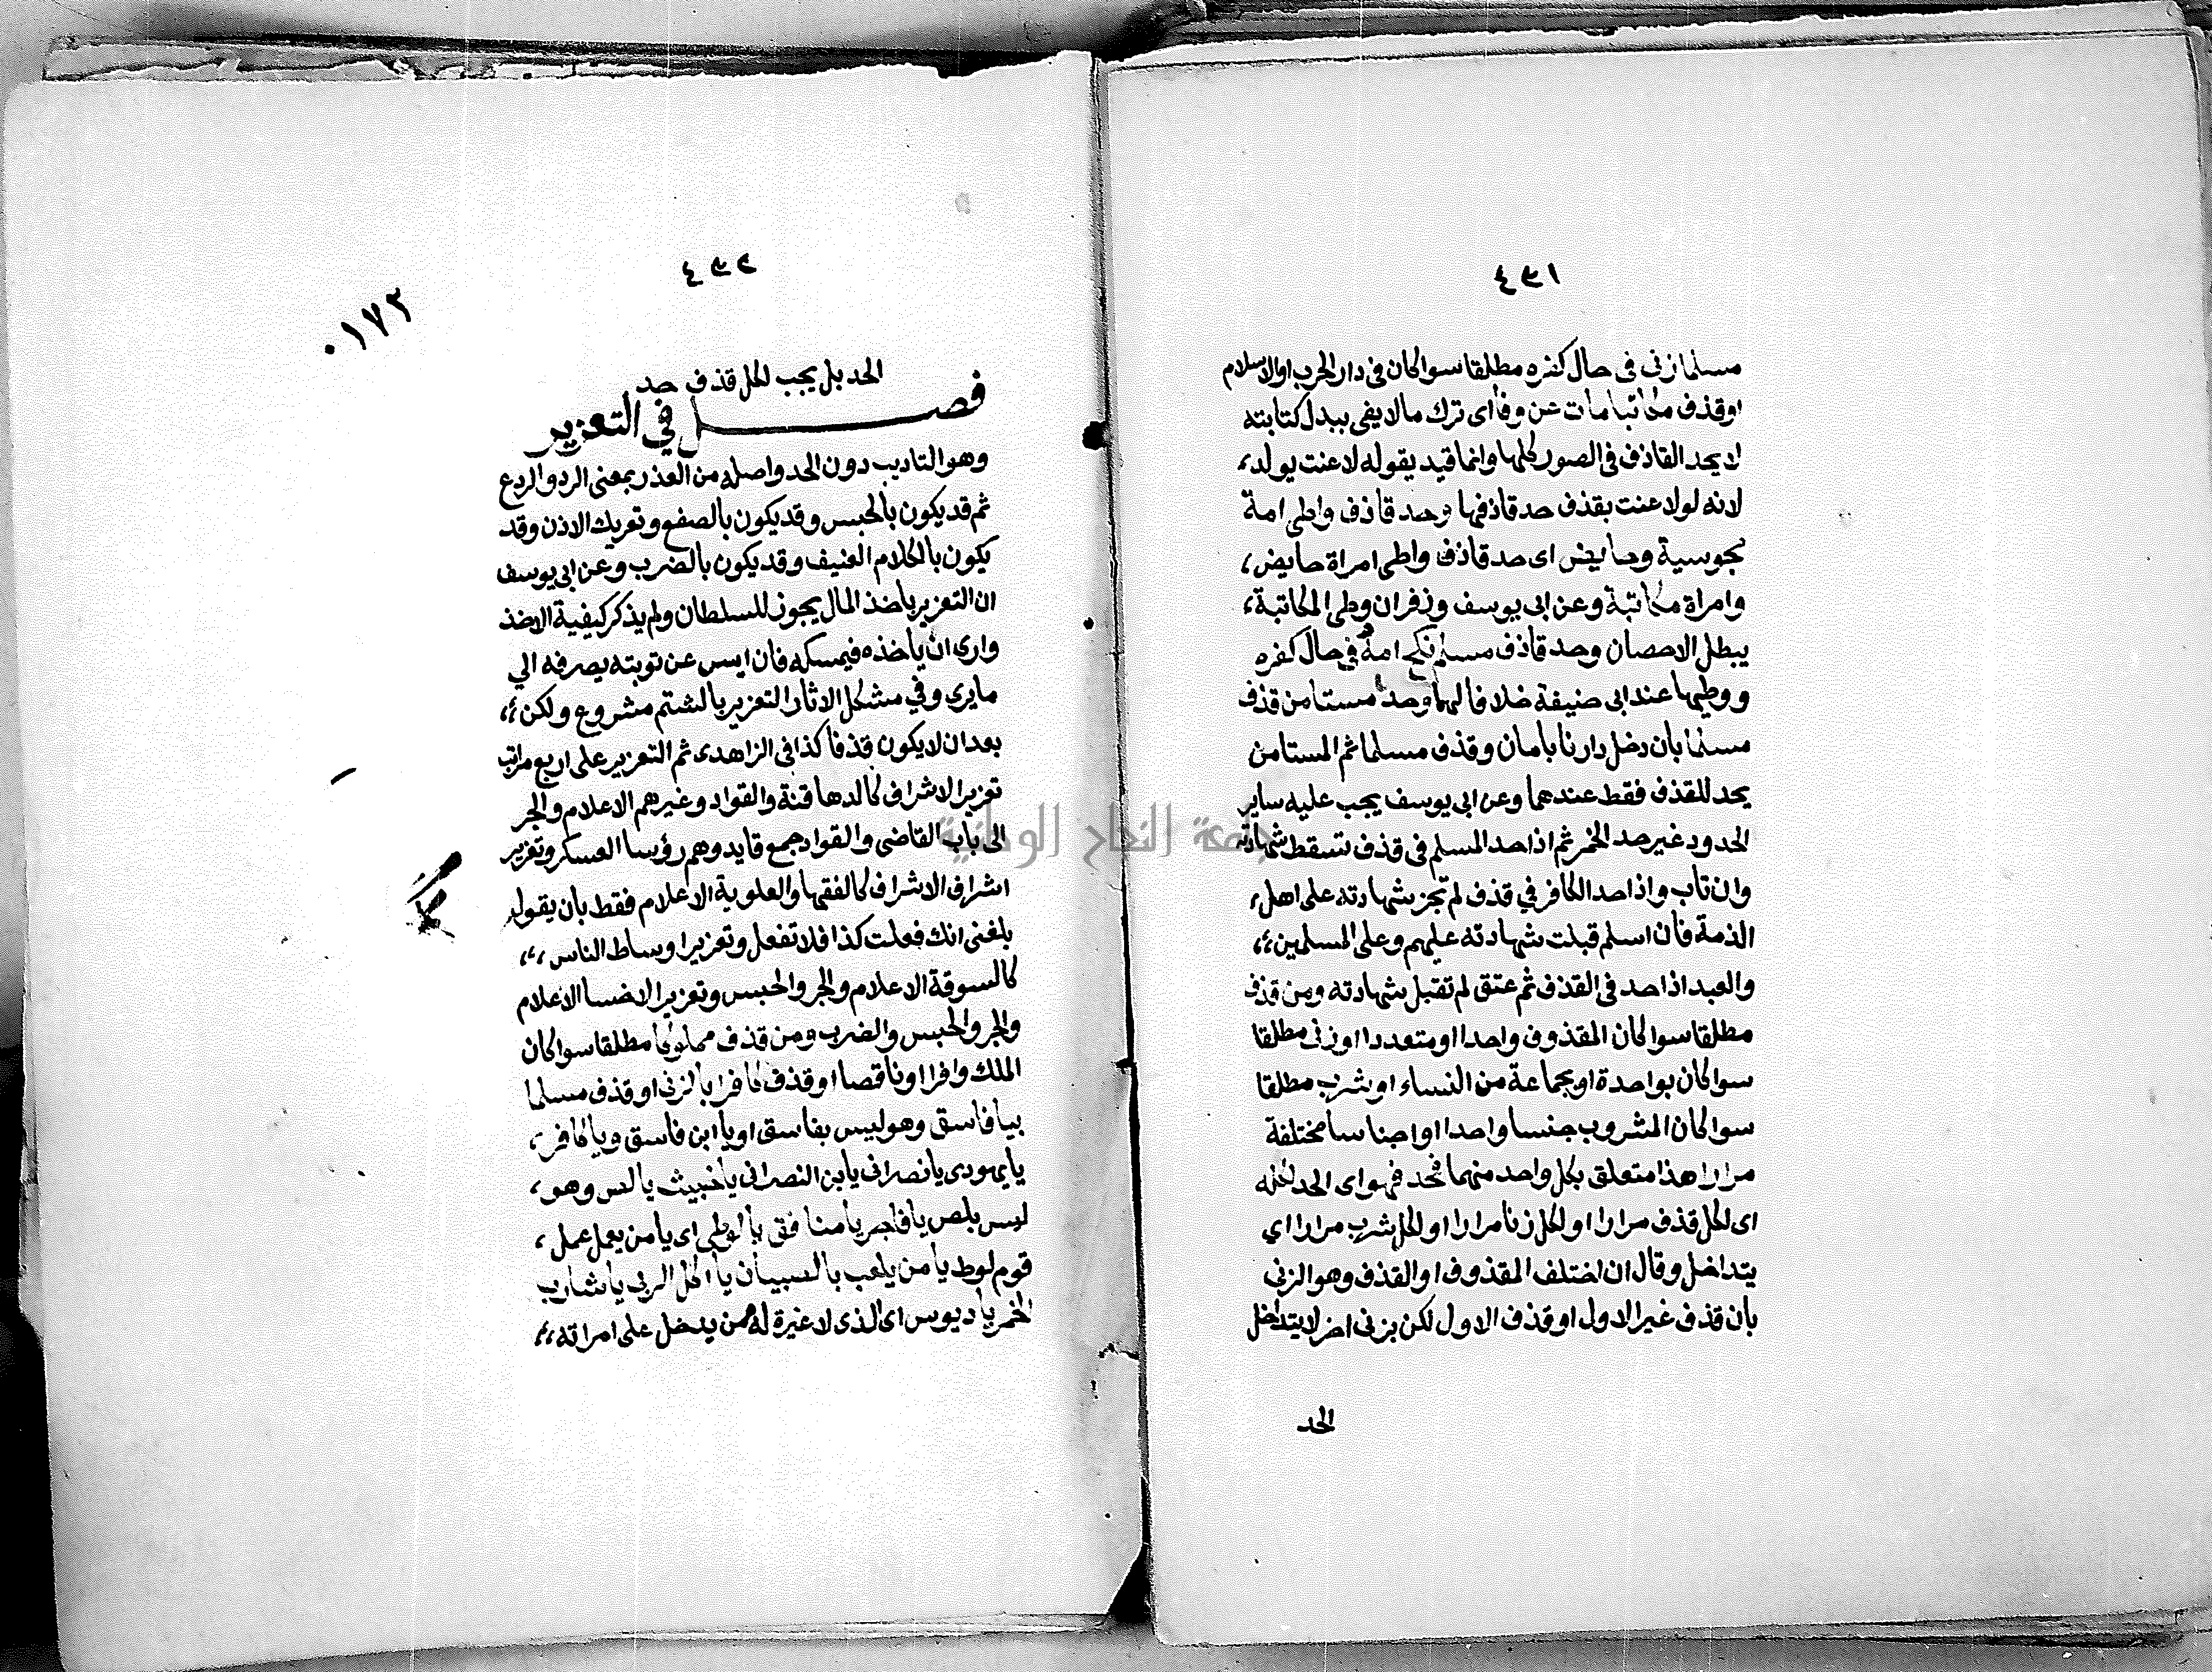 ٤٩١
مسلما زنى فى حال كفره مطلقا سوا كان فى دار الحرب او الاسلام
او قذف مكاتبا مات عن وفا اى ترك مالا يفى ببدل كتابته
لا يحد القاذف فى الصور كلها وانما قيد بقوله لاعنت بولد،
لانه لو لاعنت بقذف حد قاذفها وحد قاذف واطى امة
مجوسية وحايض اى حد قاذف واطى امراة حايض،
وامراة مكاتبة وعن ابى يوسف وزفر ان وطى المكاتبة،
يبطل الاحصان وحد قاذف مسلم نكح امه فى حال كفره
ووطيها عند ابى حنيفة خلافا لهما وحد مستامن قذف
مسلما بان دخل دارنا بامان وقذف مسلما ثم المستامن
يحد للقذف فقط عندهما وعن ابى يوسف يجب عليه ساير
الحدود غير حد الخمر ثم اذا حد المسلم فى قذف تسقط شهادته
وان تاب واذا حد الكافر في قذف لم تجز شهادته على اهل،
الذمة فان اسلم قبلت شهادته عليهم وعلى المسلمين،،
والعبد اذا حد فى القذف ثم عتق لم تقبل شهادته ومن قذف
مطلقا سوا كان المقذوف واحدا او متعددا او زنى مطلقا
سوا كان بواحدة او بجماعة من النساء او شرب مطلقا
سوا كان المشروب جنسا واحدا او اجناسا مختلفة
مرارا هذا متعلق بكل واحد منهما فحد فهو اى الحد لكله
اى لكل قذف مرارا او لكل زنا مرارا او لكل شرب مرارا اى
يتداخل وقال ان اختلف المقذوف او القذف وهو الزنى
بان قذف غير الاول او قذف الاول لكن بزنى اخر لا يتداخل
الحد
٤٩٢
٠١٧٢
الحد بل يجب لكل قذف حد
فصل في التعزير
وهو التاديب دون الحد واصله من العذر بمعنى الرد والردع
ثم قد يكون بالحبس وقد يكون بالصفع وتعريك الاذن وقد
يكون بالكلام العنيف وقد يكون بالضرب وعن ابى يوسف
ان التعزير باخذ المال يجوز للسلطان ولم يذكر كيفية الاخذ
وارى ان ياخذه فيمسكه فان ايس عن توبته يصرفه الي
ما يرى وفي مشكل الاثار التعزير بالشتم مشروع ولكن،،
بعد ان لا يكون قذفا كذا فى الزاهدى ثم التعزير على اربع مراتب
تعزير الاشراف كالدهاقنة والقواد وغيرهم الاعلام والجر
الى باب القاضى والقواد جمع قايد وهم رؤسا العسكر وتعزير
اشراف الاشراف كالفقها والعلوية الاعلام فقط بان يقول
بلغنى انك فعلت كذا فلا تفعل وتعزير اوساط الناس،،
كالسوقة الاعلام والجر والحبس وتعزير الاخسا الاعلام
والجر والحبس والضرب ومن قذف مملوكا مطلقا سوا كان
الملك وافرا او ناقصا او قذف كافرا بالزنى او قذف مسلما
بيا فاسق وهو ليس بفاسق او يا ابن فاسق ويا كافر،
يا يهودى يا نصرانى يا بن النصرانى يا خبيث يا لص وهو،
ليس بلص يا فاجر يا منافق يا لوطى اى يا من يعمل عمل،
قوم لوط يا من يلعب بالسبيان يا اكل الربى يا شارب
الخمر يا ديوس اى الذى لا غيرة له ممن يدخل على امراته،،
جامعة النجاح الوطنية